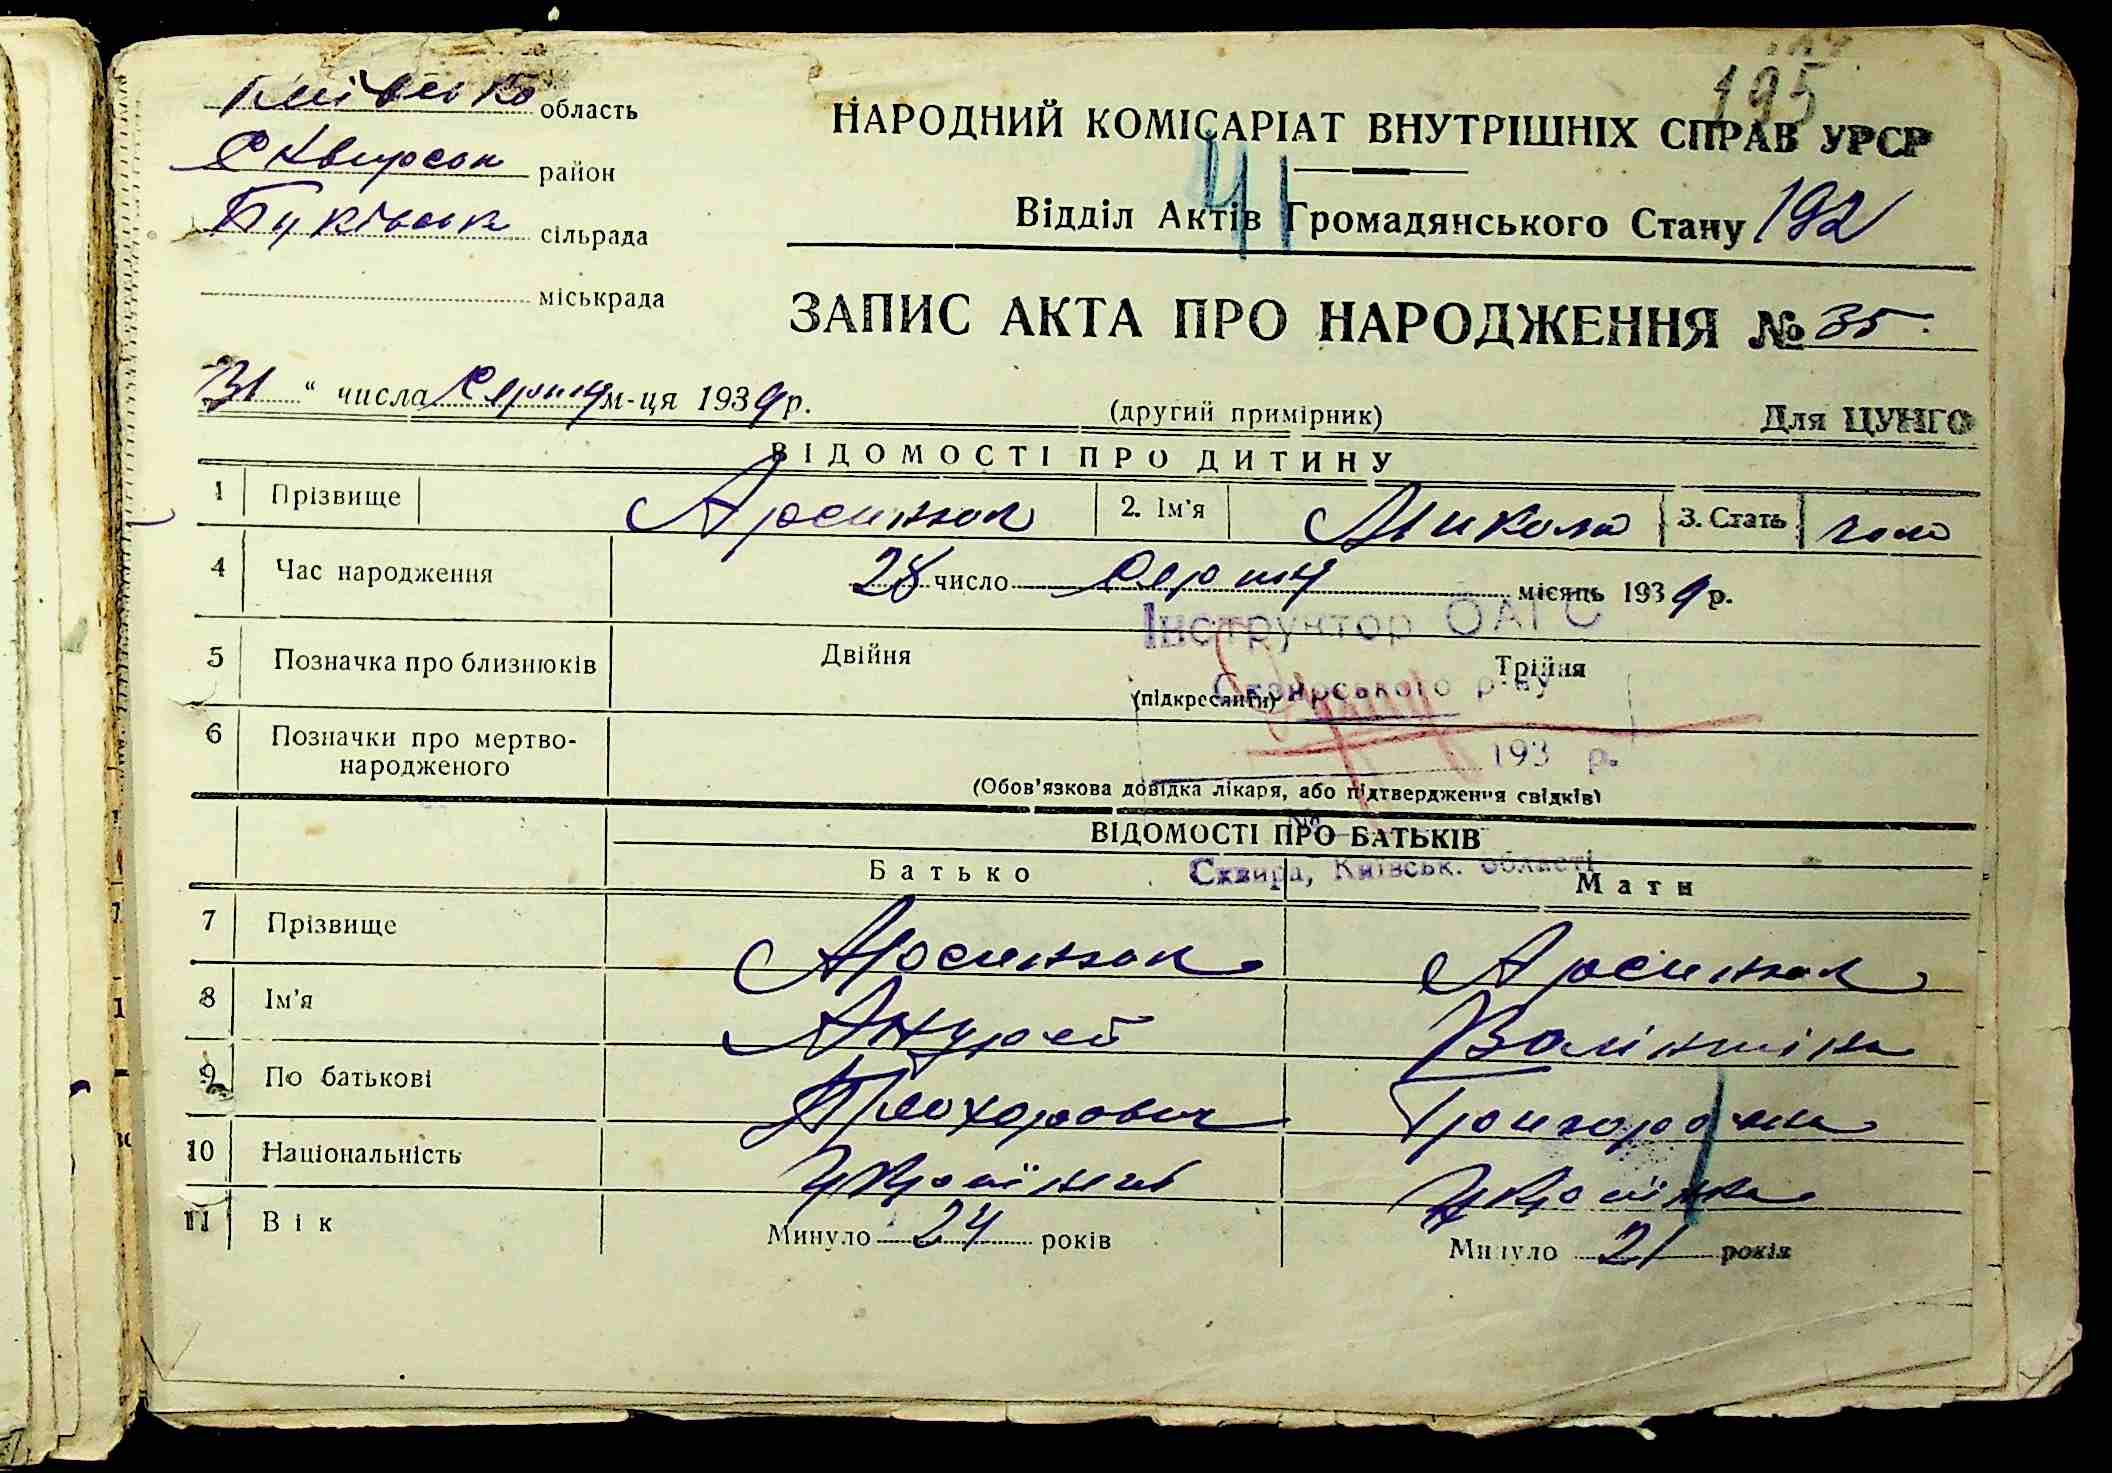 Київська область
Сквирський район
Буківська сільрада
міськрада
195
НАРОДНИЙ КОМІСАРІАТ ВНУТРІШНІХ СПРАВ УРСР
41
Відділ Актів Громадянського Стану 192
ЗАПИС АКТА ПРО НАРОДЖЕННЯ № 35
31 " числа Серпня м-ця 1939 р.
(другий примірник)
Для ЦУНГО
ВІДОМОСТІ ПРО ДИТИНУ
1 Прізвище Арсинюк 2. Ім'я Микола 3. Стать чол
4 Час народження 28 число Серпня місяць 1939 р.
Інструктор ОАГС
5 Позначка про близнюків Двійня Трійня
(підкреслити)
Сквирського р-ну
6 Позначки про мертво-
народженого
193 р.
(Обов'язкова довідка лікаря, або підтвердження свідків)
ВІДОМОСТІ ПРО БАТЬКІВ
Сквира, Київськ. області
Батько Мати
7 Прізвище Арсинюк Арсинюк
8 Ім'я Андрей Валінтіна
9 По батькові Прохорович Григоровна
10 Національність Українец Українка
11 Вік Минуло 24 років Минуло 21 років